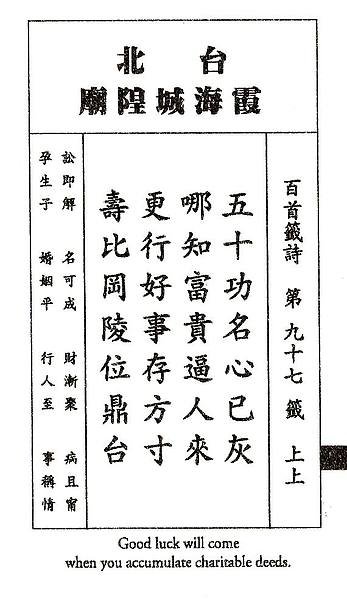 台北
霞海城隍廟
百首籤詩 第九十七籤 上上
五十功名心已灰
哪知富貴逼人來
更行好事存方寸
壽比岡陵位鼎台
訟即解 名可成 財漸聚 病且甯
孕生子 婚姻平 行人至 事稱情
Good luck will come
when you accumulate charitable deeds.